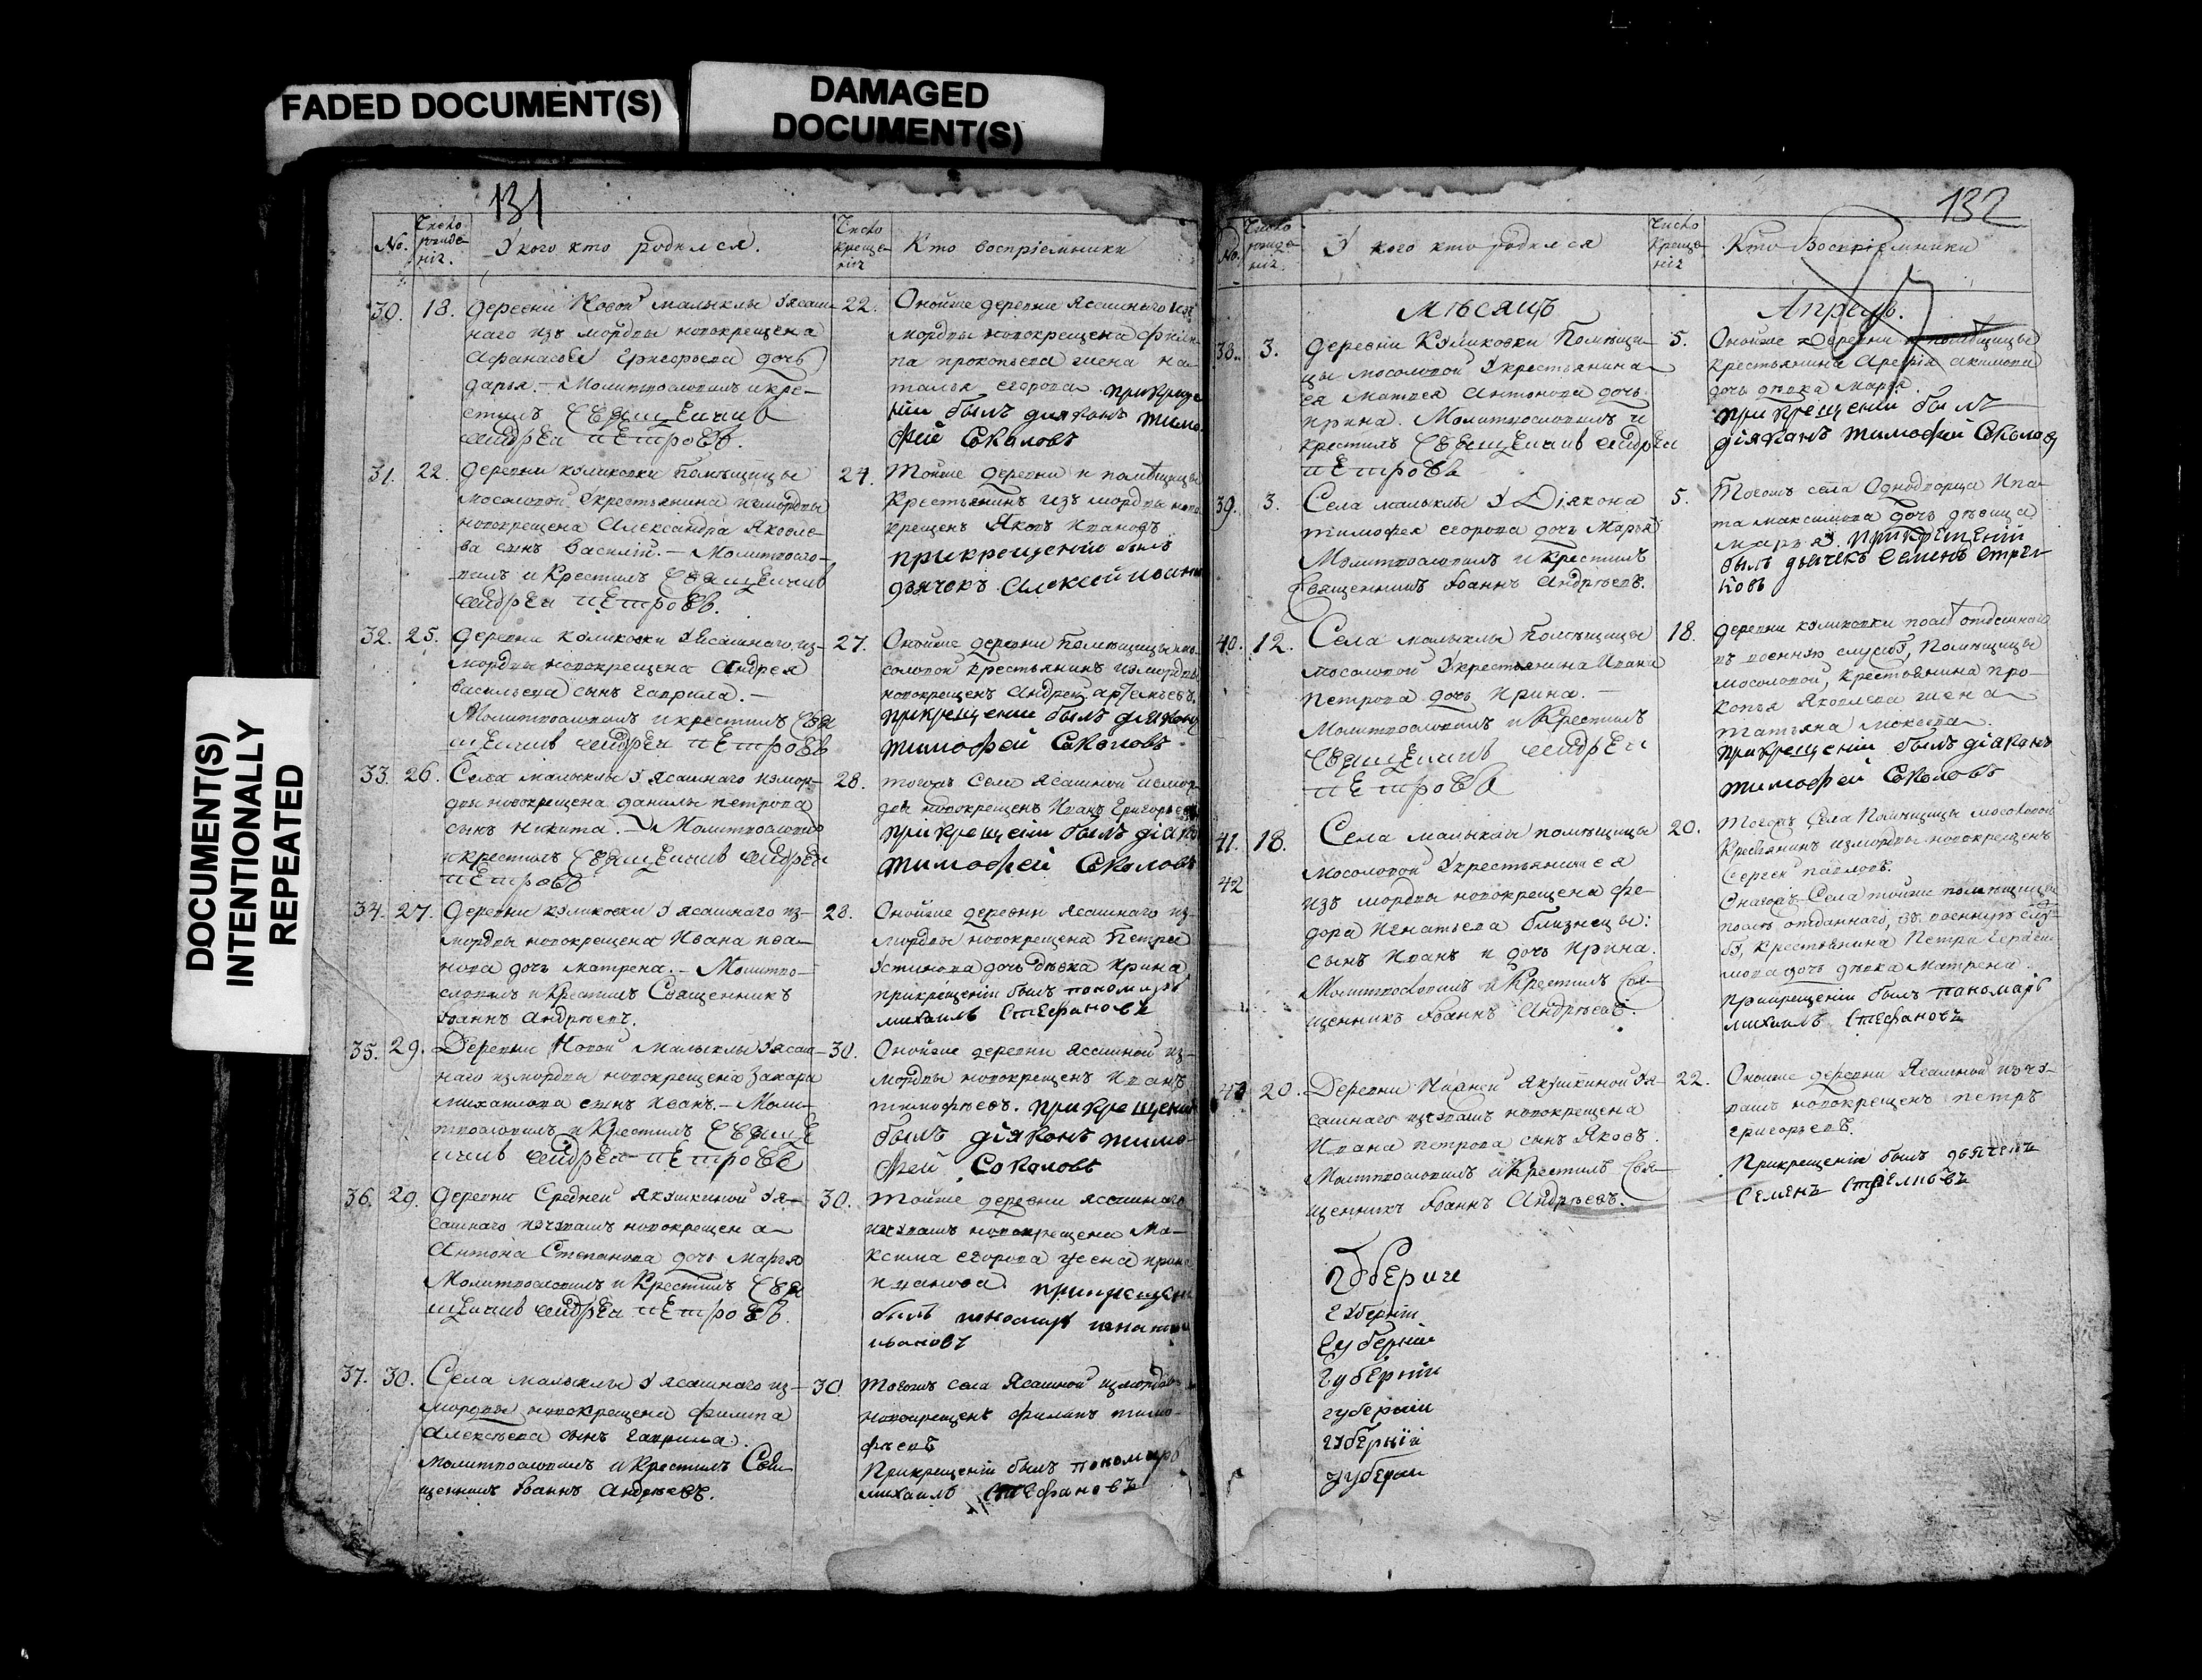 FADED DOCUMENT(S)
DAMAGED
DOCUMENT(S)
DOCUMENT(S)
INTENTIONALLY
REPEATED
131
No.
Число рожде-нія.
У кого кто родился.
Число креще-нія
Кто воспріемники
30. 18. деревни Новой малыклы У ясаш-
наго изъ мордвы новокрещена
Афанасья Григорьева дочь
дарья. – Молитвословилъ и кре-
стилъ Священникъ
Андрей Петровъ.
22. Онойже деревни ясашнаго изъ
мордвы новокрещена фили-
па прокопьева жена на-
талья егорова. при креще
ніи былъ діяконъ тимо
фей Соколовъ
31. 22. деревни куликовки помѣщицы
мосоловой У крестьянина измордвы
новокрещена Александра Яковле-
ва сынъ Василій. – Молитвосло-
вилъ и Крестилъ Священникъ
Андрей Петровъ.
24. Тойже деревни и помѣщицы
Крестьянинъ изъ мордвы ново
крещенъ Яковъ Ивановъ.
прикрещеніи былъ
дьячокъ Алексей иванов
32. 25. деревни куликовки У Ясашнаго из-
мордвы новокрещена Андрея
Васильева сынъ гаврила. –
Молитвословилъ и крестилъ Свя
щенникъ Андрей Петровъ
27. Онойже деревни помѣщицы мо-
соловой крестьянинъ измордвы
новокрещенъ Андрей артемьевъ.
прикрещении былъ діяконъ
тимофей Соколовъ.
33. 26. Села малыклы У ясашнаго измор-
двы новокрещена данилы петрова
сынъ никита. – Молитвословилъ
и крестилъ Священникъ Андрей
Петровъ
28. тогожъ села ясашной измор
двы новокрещенъ Иванъ Григорьевъ
при крещеніи былъ діяко
тимофей Соколовъ
34. 27. Деревни куликовки У ясашнаго из-
мордвы новокрещена Ивана ива-
нова дочь матрена. – Молитво-
словилъ и Крестилъ Священникъ
Іоаннъ Андрѣевъ.
28. Онойже деревни ясашнаго из-
мордвы новокрещена Петра
Устинова дочь дѣвка Ирина
прикрещеніи былъ пономарь
михаилъ Стефановъ
35. 29. Деревни Новой Малыклы У ясаш-
наго измордвы новокрещена Захара
михаилова сынъ иванъ. – Моли-
твословилъ и Крестилъ Священ
никъ Андрей Петровъ
30. Онойже деревни ясашной из-
мордвы новокрещенъ Иванъ
тимофѣевъ. прикрещении
былъ діяконъ тимо-
фей Соколовъ
36. 29. Деревни Средней Якушкиной У я-
сашнаго изчувашъ новокрещена
Антона Степанова дочь Марья
Молитвословилъ и Крестилъ Свя
щенникъ Андрей Петровъ.
30. тойже деревни ясашнаго
изчувашъ новокрещена Ма-
ксима егорова жена ирина
иванова. прикрещени
былъ пономарь
ивановъ
37. 30. Села малыклы У ясашнаго из-
мордвы новокрещена филипа
Алексѣева сынъ гаврила.
молитвословилъ и Крестилъ Свя
щенникъ Іоаннъ Андрѣевъ.
30. тогожъ села Ясашной измордвы
новокрещенъ филипъ тимо-
фѣевъ
Прикрещеніи былъ пономарь
михаилъ Стефановъ
132
No.
Число рожде-нія.
У кого кто родился
Число Креще-нія
Кто Воспріемники
мѣсяцъ Апрель.
38. 3. деревни Куликовки Помѣщи-
цы мосоловой У крестьянина
ея Матвея Антонова дочь
ирина. Молитвословилъ и
крестилъ Священникъ Андрей
Петровъ
5. Онойже деревни помѣщицы
крестьянина Арефія акимова
дочь дѣвка Марфа.
при крещеніи былъ
діяканъ тимофей Соколов
39. 3. Села малыклы У Діякона
тимофея егорова дочь Марья
Молитвословилъ и Крестилъ
Священникъ Іоаннъ Андрѣевъ.
5. Тогожъ села Однодворца Ипа-
та максимова дочь дѣвица
марья. прикрещеніи
былъ дьячекъ Семенъ Стрел
ковъ
40. 12. Села малыклы помѣщицы
мосоловой У крестьянина Ивана
петрова дочь Ирина. –
Молитвословилъ и Крестилъ
Священникъ Андрей
Петровъ
18. деревни куликовки той отданнаго
въ военную службу, Помѣщицы
мосоловой, крестьянина про-
копья Яковлева жена
татьяна мокеева.
прикрещеніи былъ діяканъ
тимофей Соколовъ
41. 18. Села малыклы помѣщицы
42
мосоловой У крестьянина ея
изъ мордвы новокрещена фе-
дора Игнатьева близнецы:
сынъ Иванъ и дочь Ирина.
Молитвословилъ и Крестилъ Свя-
щенникъ Іоаннъ Андрѣевъ.
20. Тогожъ Села Помѣщицы мосоловой
Крестьянинъ измордвы новокрещенъ
Сергей павловъ.
Онагожъ Села тойже помѣщицы
отданнаго, въ военную служ-
бу, крестьянина Петра Гераси-
мова дочь дѣвка матрена.
Прикрещеніи былъ понамарь
михаилъ Стефановъ
43 20. Деревни Нижней Якушкиной У я-
сашнаго изчувашъ новокрещена
Ивана петрова сынъ Яковъ.
Молитвословилъ и Крестилъ Свя-
щенникъ Іоаннъ Андрѣевъ.
22. Онойже деревни Ясашной изчу-
вашъ новокрещенъ петръ
григорьевъ.
Прикрещеніи былъ дьячекъ
Семенъ Стрелковъ
Губерніи
Губерніи
Губерніи
Губерніи
губерніи
губерніи
губерніи